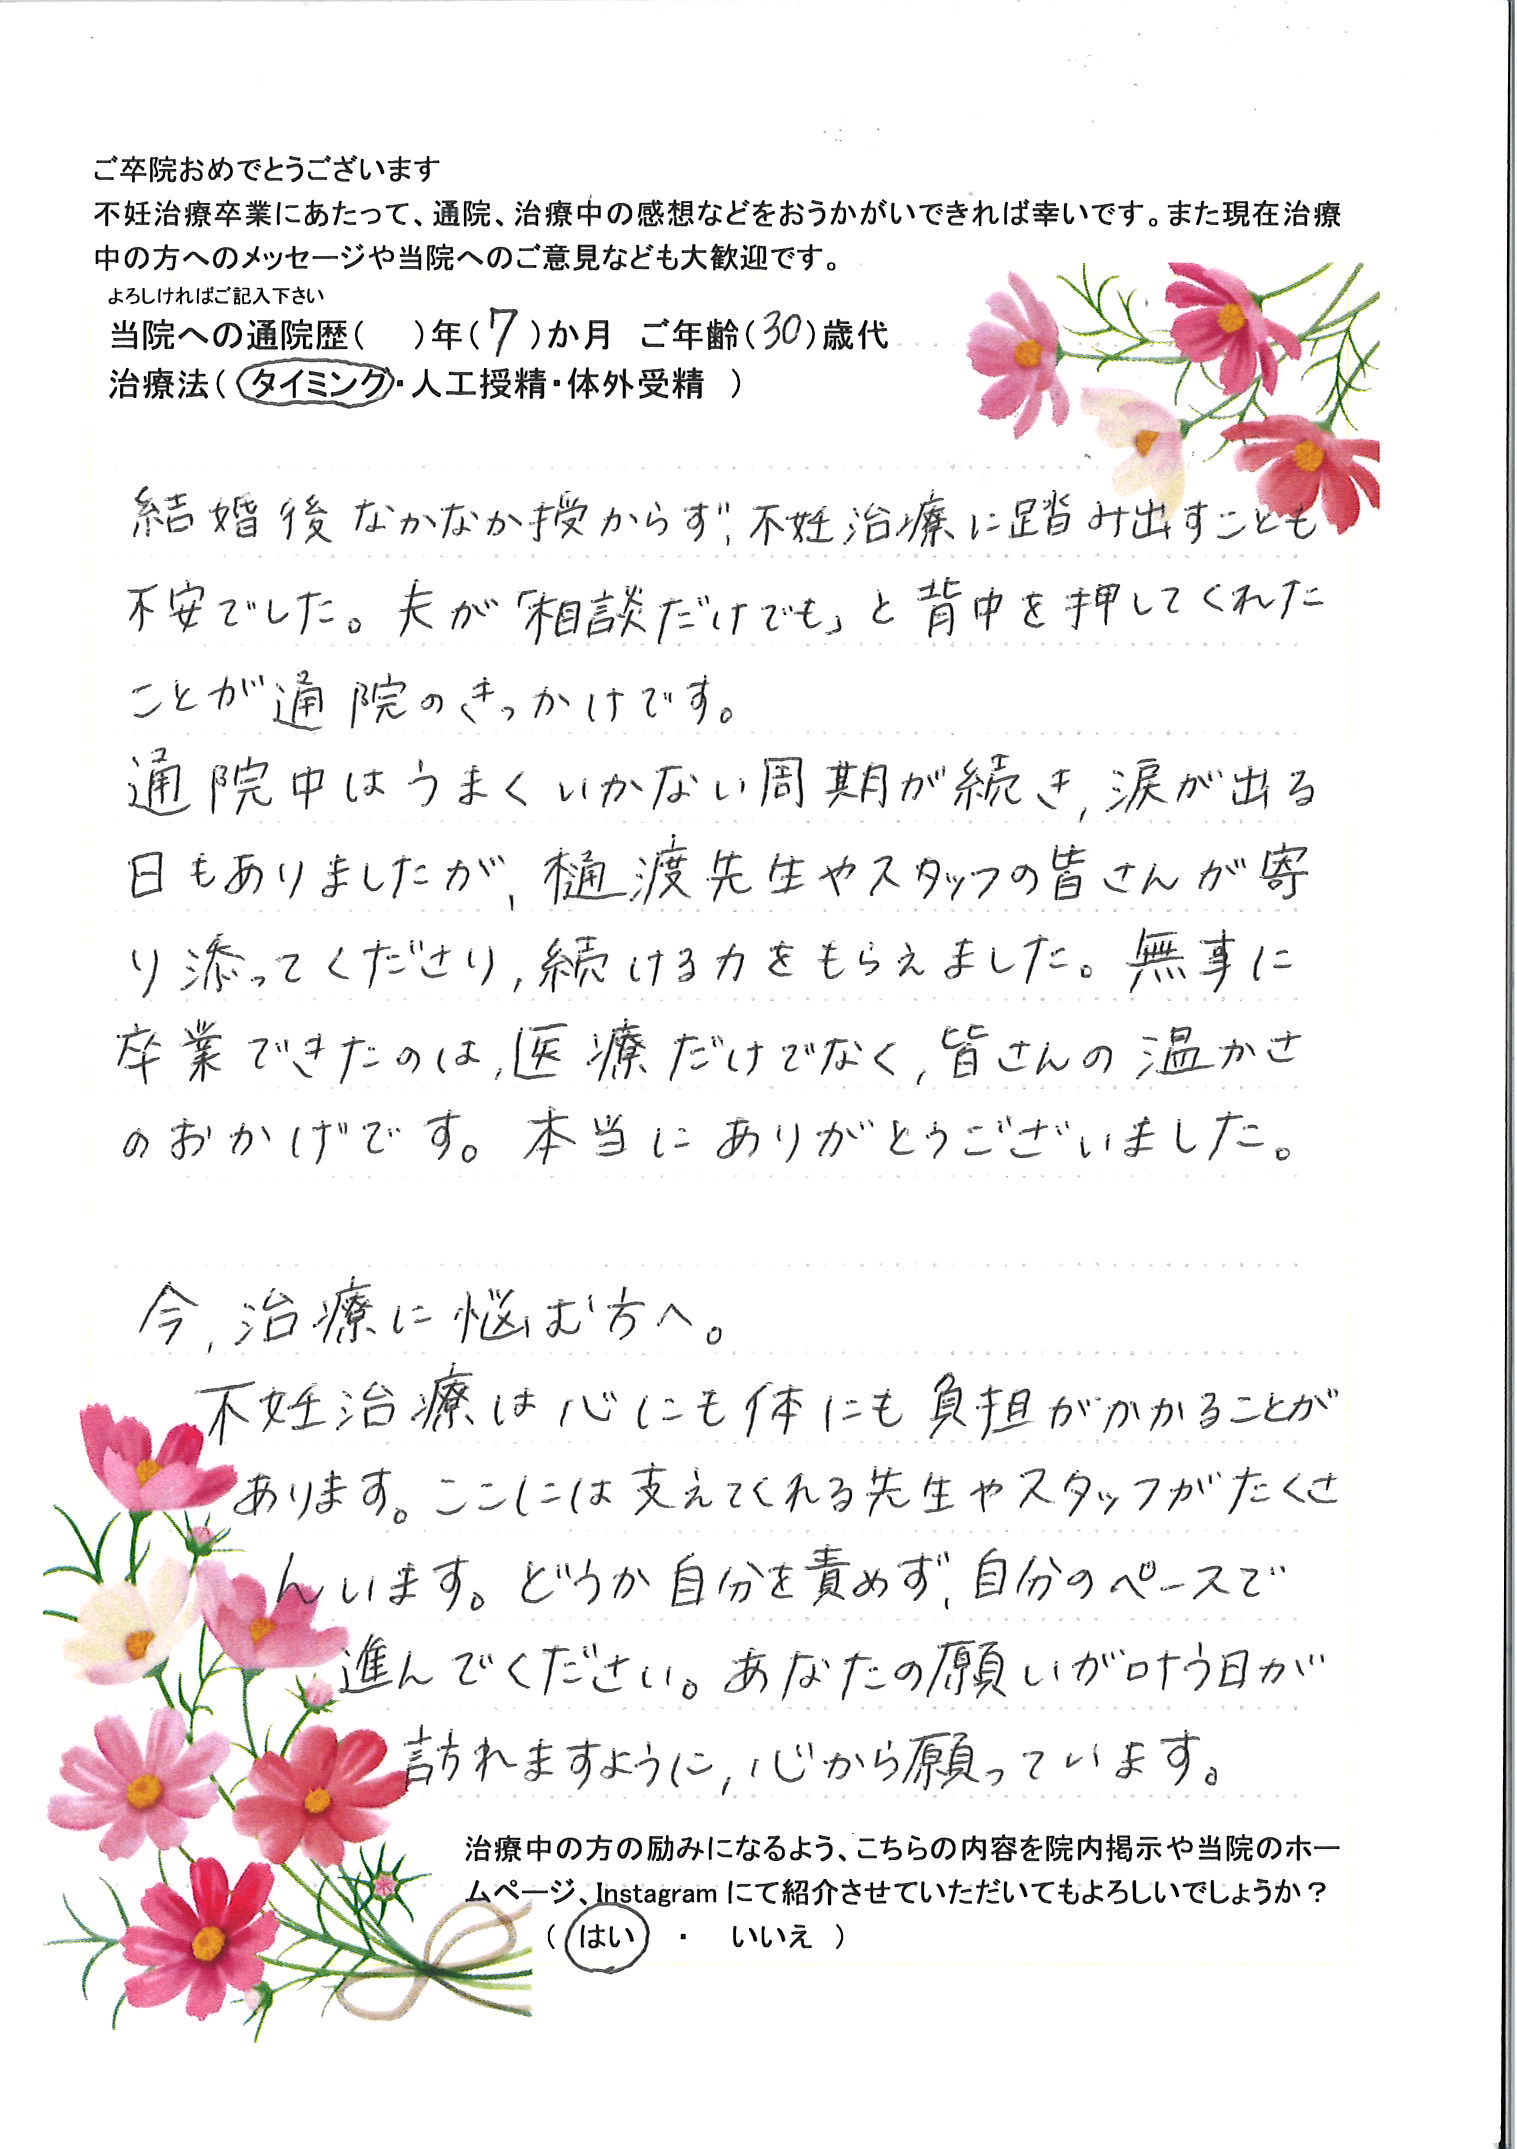 ご卒院おめでとうございます
不妊治療卒業にあたって、通院、治療中の感想などをおうかがいできれば幸いです。また現在治療
中の方へのメッセージや当院へのご意見なども大歓迎です。
よろしければご記入下さい
当院への通院歴(　)年(7)か月　ご年齢(30)歳代
治療法(タイミング・人工授精・体外受精　)
結婚後なかなか授からず,不妊治療に踏み出すことも
不安でした。夫が「相談だけでも」と背中を押してくれた
ことが通院のきっかけです。
通院中はうまくいかない周期が続き,涙が出る
日もありましたが,樋渡先生やスタッフの皆さんが寄
り添ってくださり,続ける力をもらえました。無事に
卒業できたのは,医療だけでなく,皆さんの温かさ
のおかげです。本当にありがとうございました。
今,治療に悩む方へ。
不妊治療は心にも体にも負担がかかることが
あります。ここには支えてくれる先生やスタッフがたくさ
んいます。どうか自分を責めず,自分のペースで
進んでください。あなたの願いが叶う日が
訪れますように,心から願っています。
治療中の方の励みになるよう、こちらの内容を院内掲示や当院のホー
ムページ、Instagram にて紹介させていただいてもよろしいでしょうか？
(　はい　・　いいえ　)